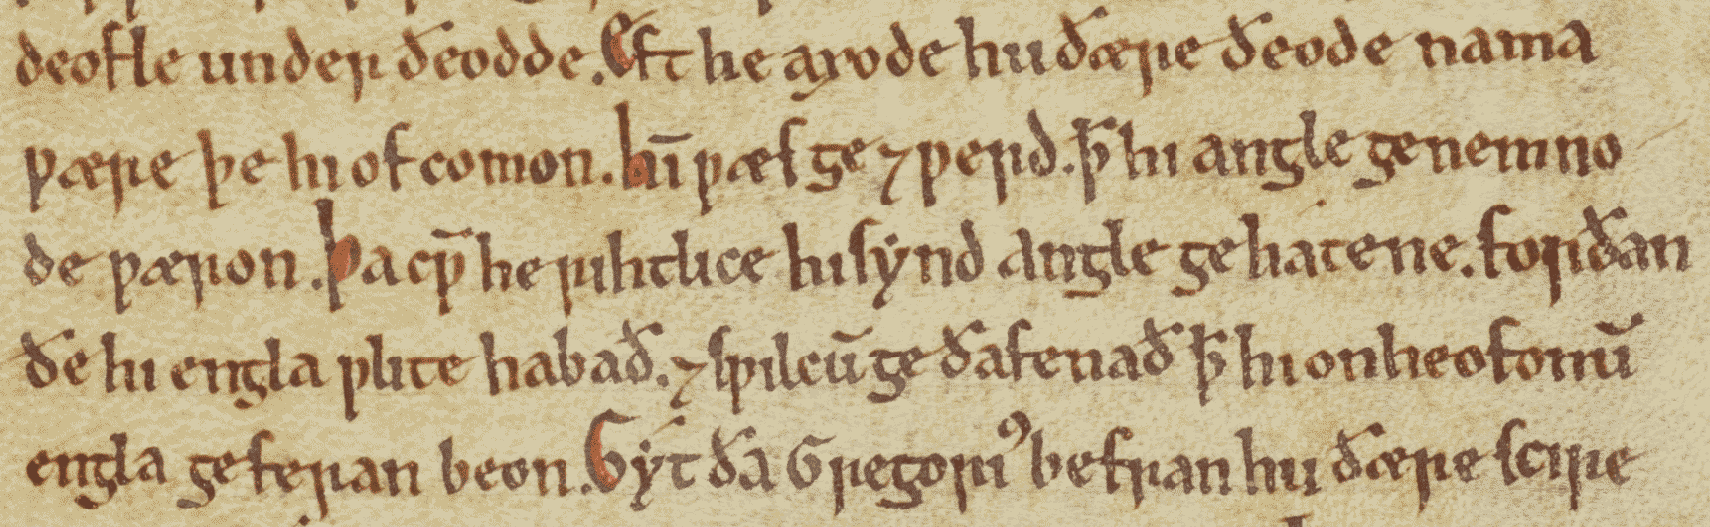 deofle under ðeodde. Eft he axode hu ðære ðeode nama
ƿære þe hi of comon. hī ƿæs ge ⁊ ƿerd. ꝥ hi angle genemno
de ƿæron. Þa cƿ̄ he rihtlice hi sẏnd angle gehátene. forðan
ðe hi engla ƿlite habað. ⁊ sƿilcū ge ðafenað ꝥ hi on heofonū
engla geferan beon. Gẏt ða Gregoriꝰ befran hu ðære scire